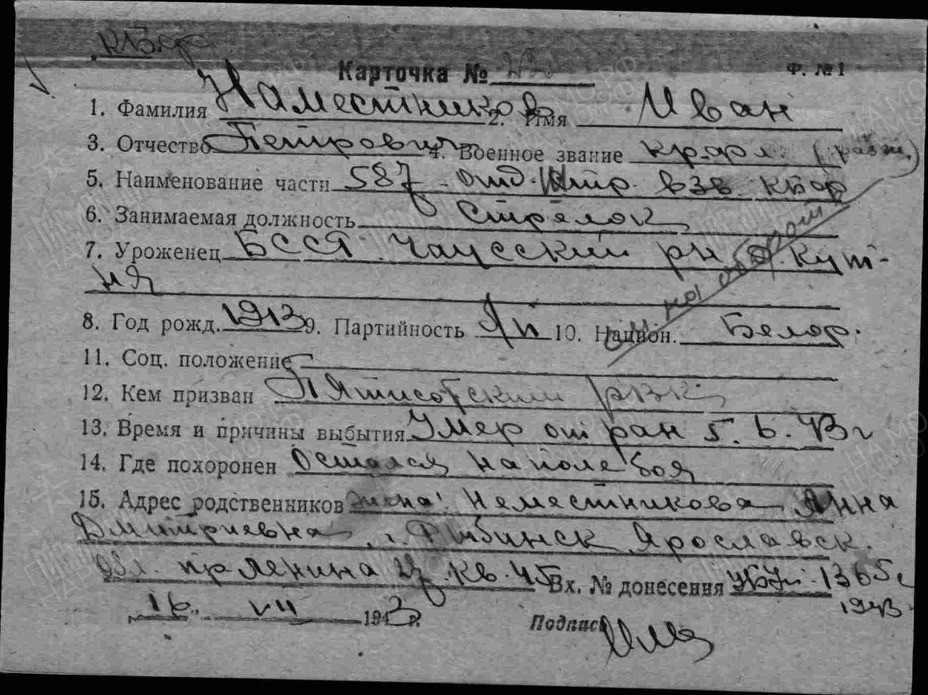 КБФ
Карточка № Ф. №1
1. Фамилия Наместников 2. Имя Иван
3. Отчество Петрович 4. Военное звание кр-арм. (разж.)
5. Наименование части 587 отд. штр. взв. КБФ
6. Занимаемая должность Стрелок
7. Уроженец БССР Чаусский рн д. Кут-
ня
на обороте
8. Год рожд. 1913 9. Партийность 10. Национ. Белор.
11. Соц. положение
12. Кем призван РВК
13. Время и причины выбытия Умер от ран 5.6.43г
14. Где похоронен Остался на поле боя
15. Адрес родственников жена: Неместникова Анна
Дмитриевна, г. Рыбинск Ярославск.
обл. пр Ленина кв. 45 Вх. № донесения 1365с
16 VII 1943 г. 1943
Подпись